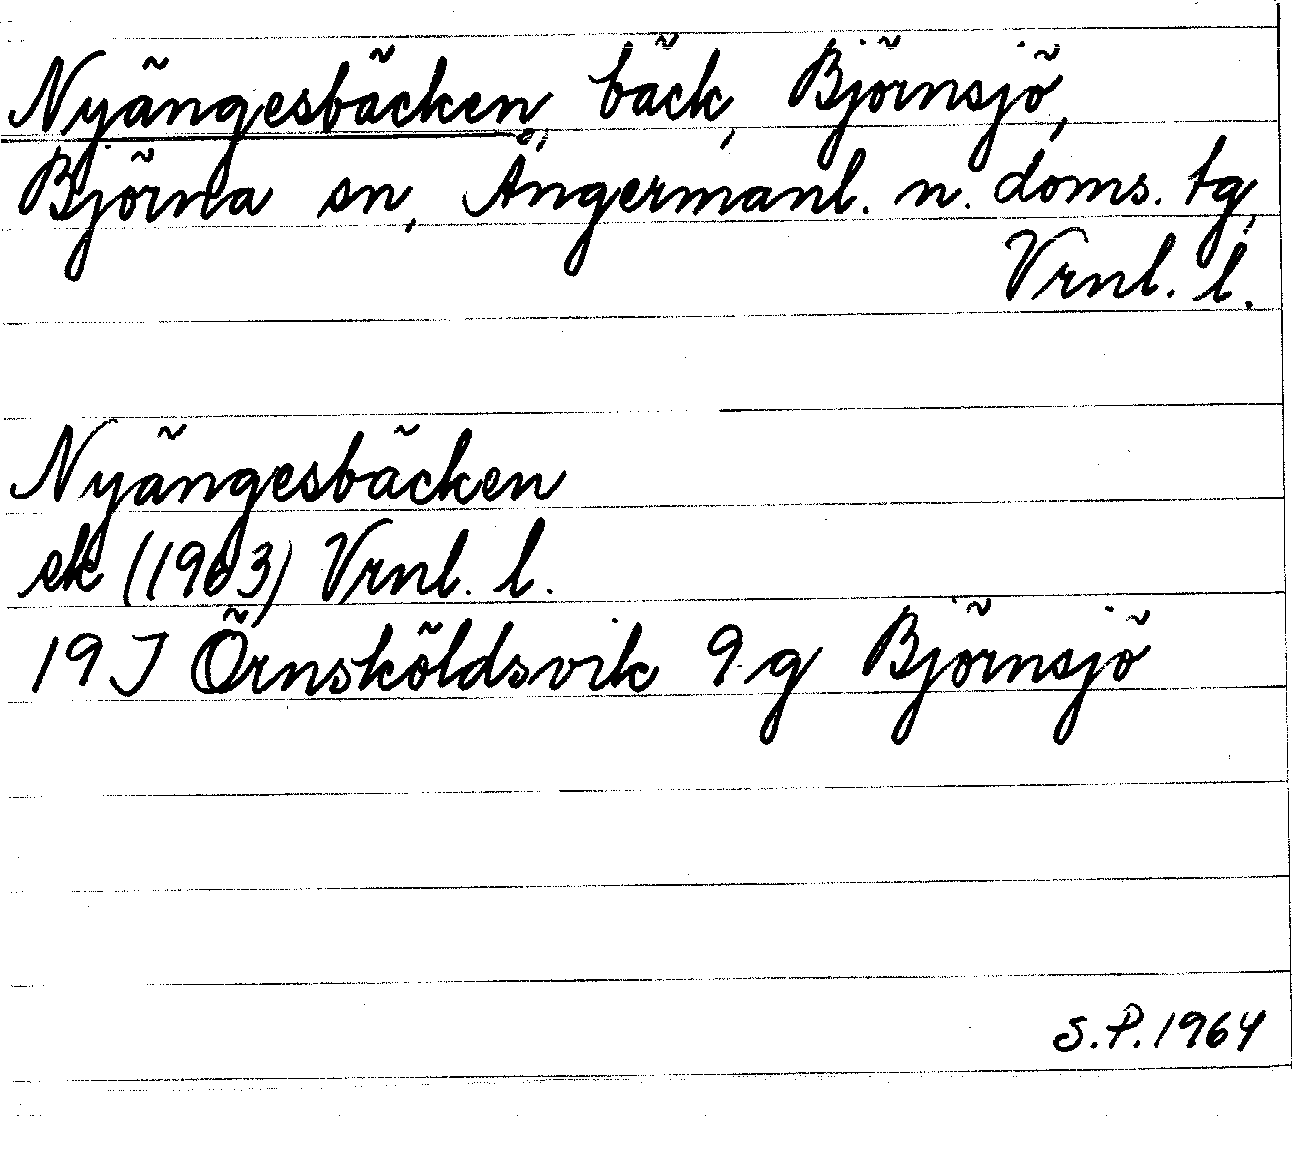 Nyängesbäcken, bäck, Björnsjö,
Björna sn, Ångermanl. n. doms. tg,
Vrnl. l.
Nyängesbäcken
ek (1963) Vrnl. l.
19 J Örnsköldsvik 9 g Björnsjö
S.P. 1964